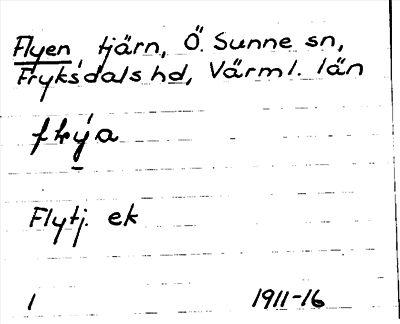 Flyen, tjärn, Ö. Sunne sn,
Fryksdals hd, Värml. län
Flytj. ek
1 1911-16